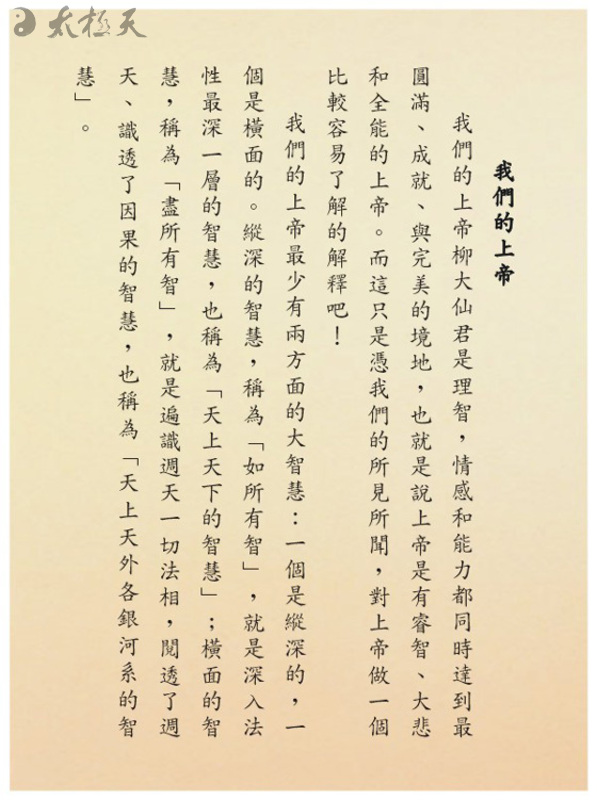 太極天
我們的上帝
我們的上帝柳大仙君是理智，情感和能力都同時達到最
圓滿、成就、與完美的境地，也就是說上帝是有睿智、大悲
和全能的上帝。而這只是憑我們的所見所聞，對上帝做一個
比較容易了解的解釋吧！
我們的上帝最少有兩方面的大智慧：一個是縱深的，一
個是橫面的。縱深的智慧，稱為「如所有智」，就是深入法
性最深一層的智慧，也稱為「天上天下的智慧」；橫面的智
慧，稱為「盡所有智」，就是遍識週天一切法相，閱透了週
天、識透了因果的智慧，也稱為「天上天外各銀河系的智
慧」。